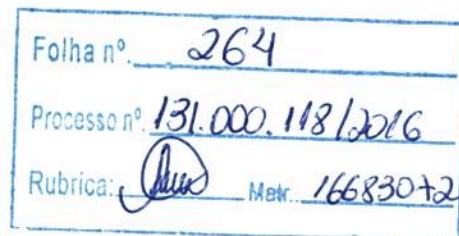 Folha nº. 264
Processo nº. 131.000.118/2016
Rubrica: Matr. 166830+2